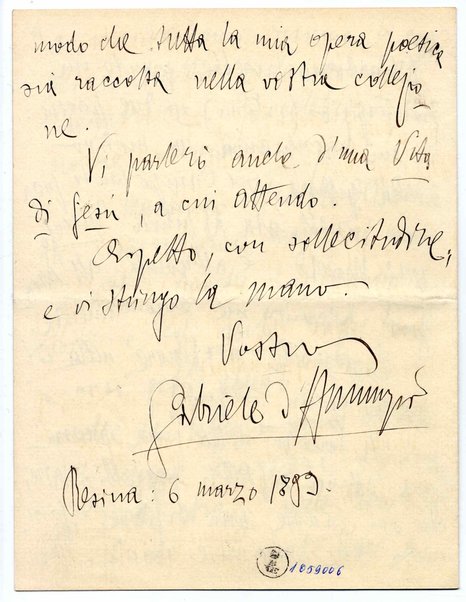 modo che tutta la mia opera poetica
sia raccolta nella vostra collezio
ne.
Vi parlerò anche d'una Vita
di Gesù, a cui attendo.
Aspetto, con sollecitudine,
e vi stringo la mano.
Vostro
Gabriele d'Annunzio
Resina: 6 marzo 1893.
1059006